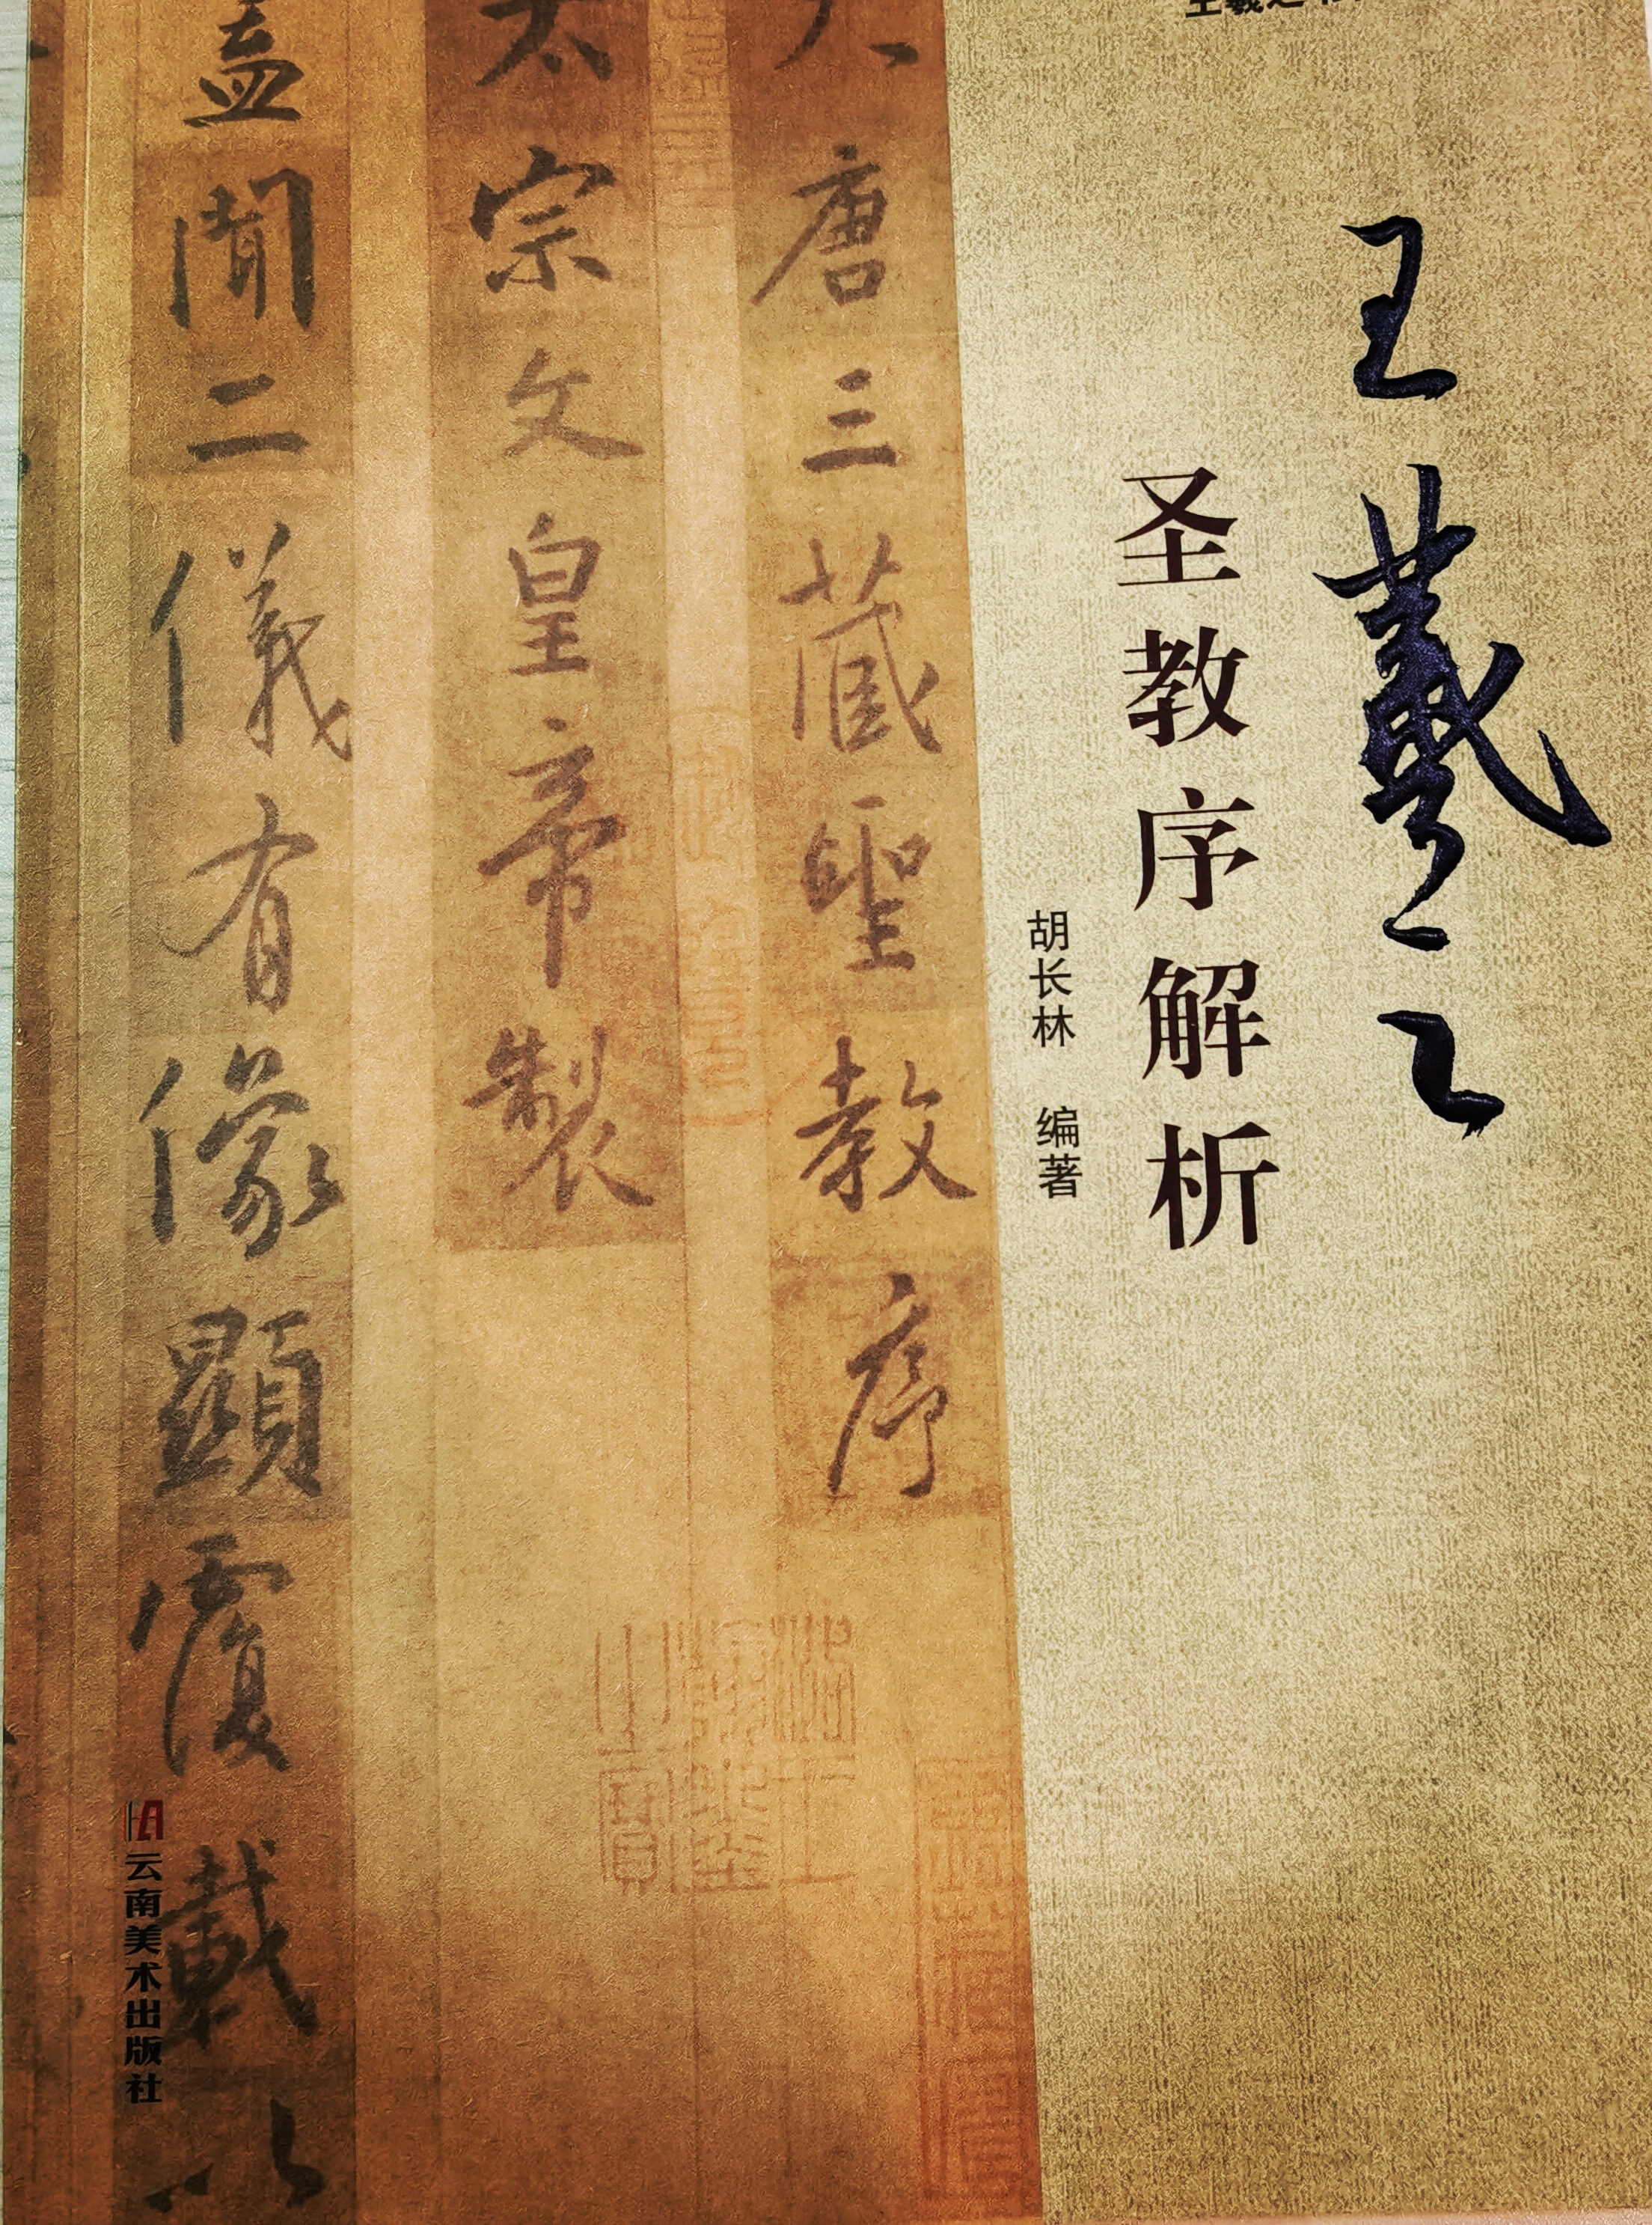 王羲之
圣教序解析
胡长林 编著
唐三藏聖教序
太宗文皇帝製
盖聞二儀有像顯覆載以
云南美术出版社